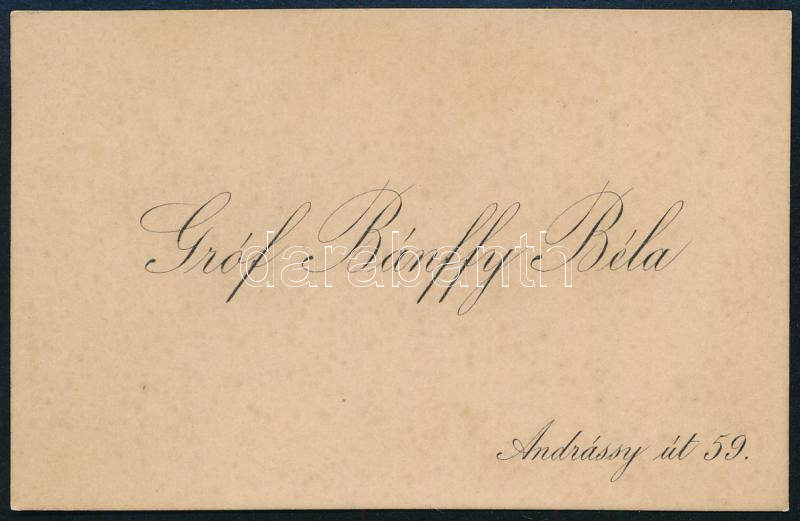 Gróf Bánffy Béla
darabanth
Andrássy út 59.